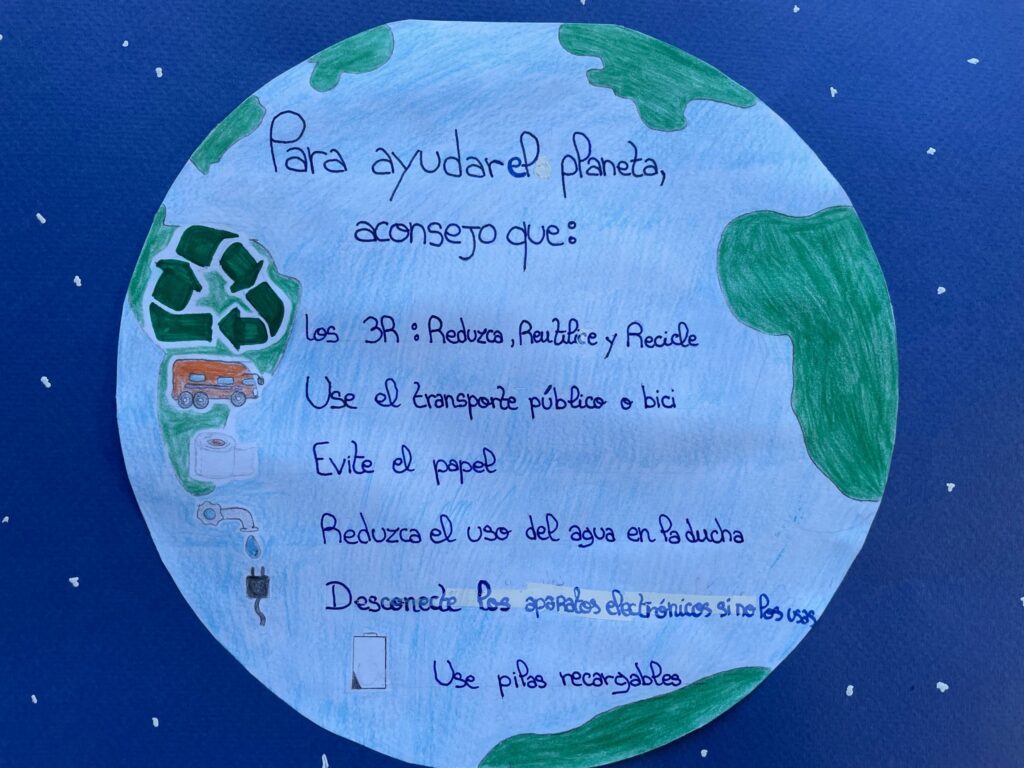 Para ayudar el planeta,
aconsejo que:
Los 3R : Reduzca, Reutilice y Recicle
Use el transporte público o bici
Evite el papel
Reduzca el uso del agua en la ducha
Desconecte los aparatos electrónicos si no los usas
Use pilas recargables